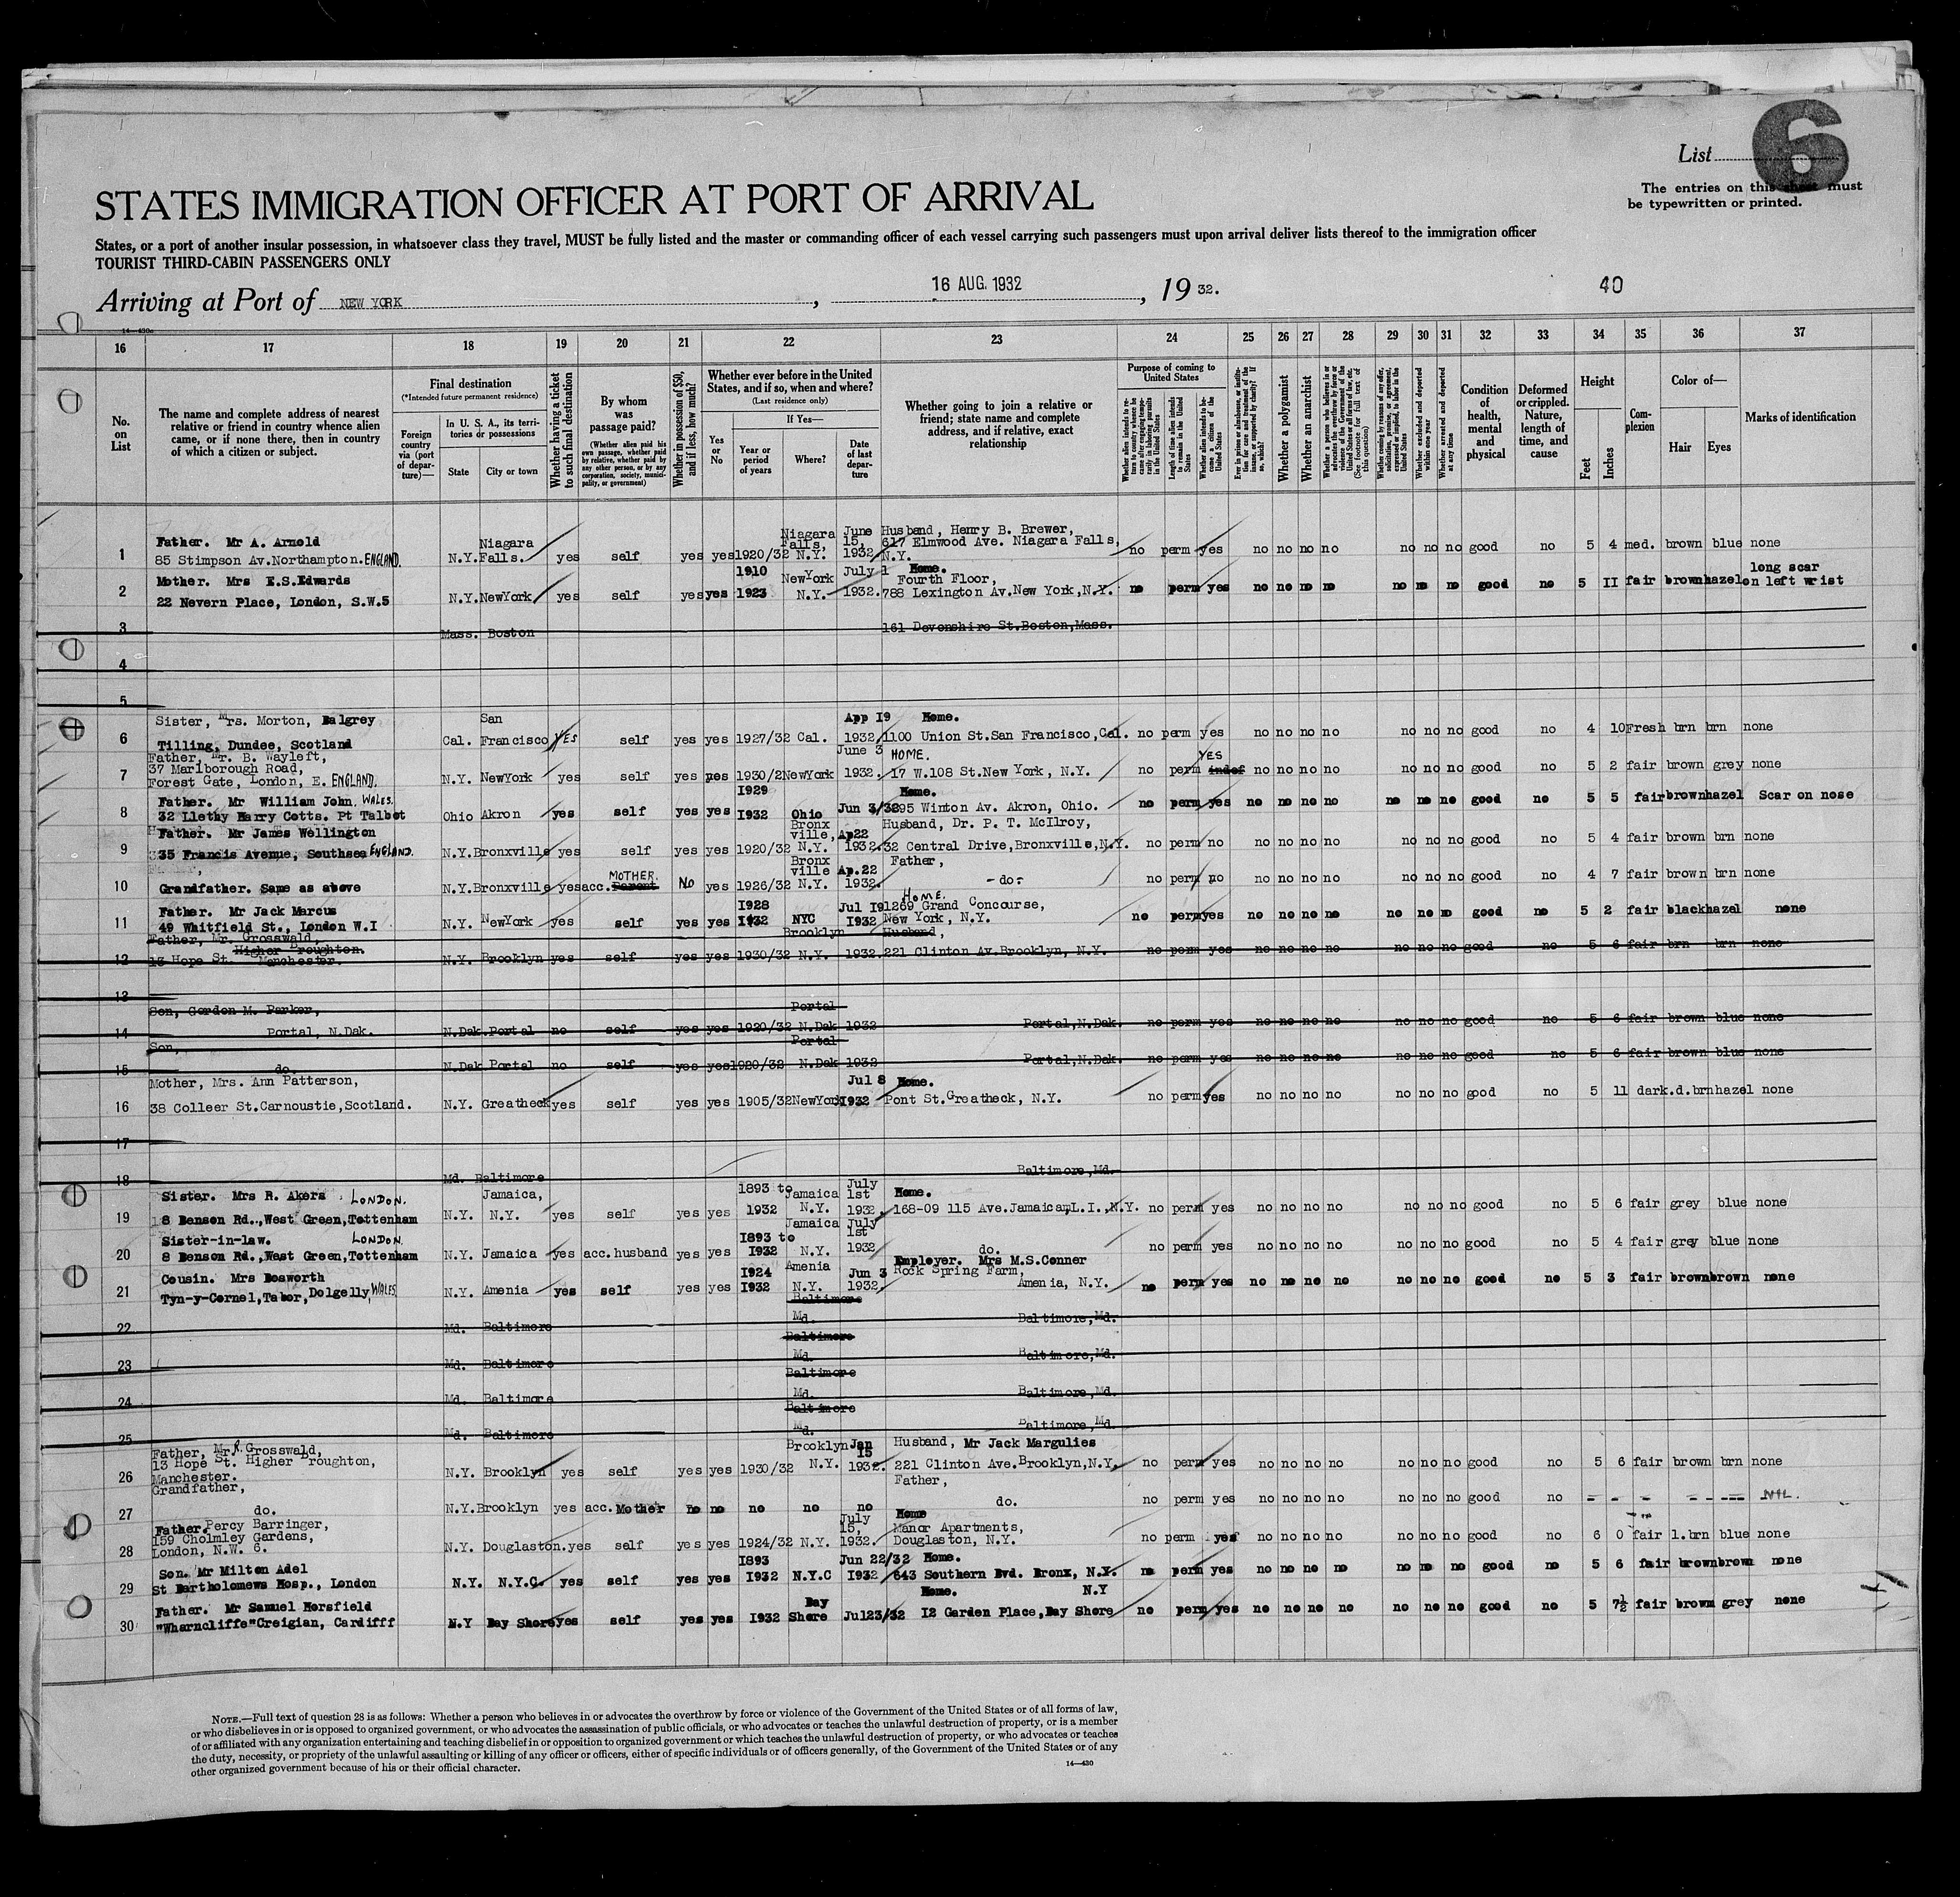 6
List
The entries on this sheet must
be typewritten or printed.
STATES IMMIGRATION OFFICER AT PORT OF ARRIVAL
States, or a port of another insular possession, in whatsoever class they travel, MUST be fully listed and the master or commanding officer of each vessel carrying such passengers must upon arrival deliver lists thereof to the immigration officer
TOURIST THIRD-CABIN PASSENGERS ONLY
Arriving at Port of NEW YORK, 16 AUG. 1932, 1932. 40
16 17 18 19 20 21 22 23 24 25 26 27 28 29 30 31 32 33 34 35 36 37
No. on List
The name and complete address of nearest relative or friend in country whence alien came, or if none there, then in country of which a citizen or subject.
Final destination
(*Intended future permanent residence)
Foreign country via (port of departure)—
In U. S. A., its territories or possessions
State City or town
Whether having a ticket to such final destination
By whom was passage paid?
(Whether alien paid his own passage, whether paid by relative, whether paid by any other person, or by any corporation, society, municipality, or government)
Whether in possession of $50, and if less, how much?
Whether ever before in the United States, and if so, when and where?
(Last residence only)
Yes or No
If Yes—
Year or period of years
Where?
Date of last departure
Whether going to join a relative or friend; state name and complete address, and if relative, exact relationship
Purpose of coming to United States
Whether alien intends to return to country whence he came after engaging temporarily in laboring pursuits in the United States
Length of time alien intends to remain in the United States
Whether alien intends to become a citizen of the United States
Ever in prison or almshouse, or institution for care and treatment of the insane, or supported by charity? If so, which?
Whether a polygamist
Whether an anarchist
Whether a person who believes in or advocates the overthrow by force or violence of the Government of the United States or all forms of law, etc. (See footnote for full text of this question)
Whether coming by reasons of any offer, solicitation, promise, or agreement, expressed or implied, to labor in the United States
Whether excluded and deported within one year
Whether arrested and deported at any time
Condition of health, mental and physical
Deformed or crippled. Nature, length of time, and cause
Height
Feet Inches
Complexion
Color of—
Hair Eyes
Marks of identification
1 Father. Mr A. Arnold 85 Stimpson Av.Northampton.ENGLAND. N.Y. Niagara Falls. yes self yes yes 1920/32 Niagara Falls, N.Y. June 15, 1932 Husband, Henry B. Brewer, 617 Elmwood Ave. Niagara Falls, N.Y. no perm yes no no no no no no no good no 5 4 med. brown blue none
2 Mother. Mrs E.S.Edwards 22 Nevern Place, London, S.W.5 N.Y. NewYork yes self yes yes 1910 1923 NewYork N.Y. July 1 1932. Home. Fourth Floor, 788 Lexington Av.New York,N.Y. no perm yes no no no no no no no good no 5 II fair brown hazel long scar on left wrist
3 Mass. Boston 161 Devonshire St.Boston,Mass.
4
5
6 Sister, Mrs. Morton, Balgrey Tilling, Dundee, Scotland Cal. San Francisco YES self yes yes 1927/32 Cal. App I9 1932 Home. 1100 Union St.San Francisco,Cal. no perm yes no no no no no no no good no 4 10 Fresh brn brn none
7 Father, Mr. B. Wayleft, 37 Marlborough Road, Forest Gate, London, E. ENGLAND. N.Y. NewYork yes self yes yes 1930/2 NewYork June 3 1932. HOME. 17 W.108 St.New York, N.Y. no perm YES indef no no no no no no no good no 5 2 fair brown grey none
8 Father. Mr William John. WALES. 32 Llethy Harry Cotts. Pt Talbot Ohio Akron yes self yes yes I929 I932 Ohio Jun 3/32 Home. 895 Winton Av. Akron, Ohio. no perm yes no no no no no no no good no 5 5 fair brown hazel Scar on nose
9 Father. Mr James Wellington 35 Francis Avenue, Southsea ENGLAND. N.Y. Bronxville yes self yes yes 1920/32 Bronxville, N.Y. Ap22 1932. Husband, Dr. P. T. McIlroy, 32 Central Drive,Bronxville,N.Y. no perm no no no no no no no no good no 5 4 fair brown brn none
10 Grandfather. Same as above N.Y. Bronxville yes acc. MOTHER. Parent No yes 1926/32 Bronxville N.Y. Ap.22 1932. Father, -do- no perm no no no no no no no no good no 4 7 fair brown brn none
11 Father. Mr Jack Marcus 49 Whitfield St., London W.I N.Y. NewYork yes self yes yes I928 I932 NYC Jul I9 I932 HOME. 1269 Grand Concourse, New York, N.Y. no perm yes no no no no no no no good no 5 2 fair black hazel none
12 Father, Mr. Grosswald, 13 Hope St. Higher Broughton. Manchester. N.Y. Brooklyn yes self yes yes 1930/32 Brooklyn N.Y. 1932. Husband, 221 Clinton Av.Brooklyn, N.Y. no perm yes no no no no no no no good no 5 6 fair brn brn none
13
14 Son, Gordon M. Parker, Portal, N.Dak. N.Dak. Portal no self yes yes 1920/32 Portal N.Dak 1932 Portal,N.Dak. no perm yes no no no no no no no good no 5 6 fair brown blue none
15 Son, do. N.Dak Portal no self yes yes 1920/32 Portal N.Dak 1932 Portal,N.Dak. no perm yes no no no no no no no good no 5 6 fair brown blue none
16 Mother, Mrs. Ann Patterson, 38 Colleer St.Carnoustie,Scotland. N.Y. Greatheck yes self yes yes 1905/32 NewYork Jul 8 1932 Home. Pont St.Greatheck, N.Y. no perm yes no no no no no no no good no 5 11 dark. d.brn hazel none
17
18 Md. Baltimore Baltimore,Md.
19 Sister. Mrs R. Akers LONDON. 8 Benson Rd.,West Green,Tottenham N.Y. Jamaica, N.Y. yes self yes yes 1893 to 1932 Jamaica N.Y. July 1st 1932, Home. 168-09 115 Ave.Jamaica,L.I.,N.Y. no perm yes no no no no no no no good no 5 6 fair grey blue none
20 Sister-in-law. LONDON. 8 Benson Rd.,West Green,Tottenham N.Y. Jamaica yes acc.husband yes yes I893 to I932 Jamaica N.Y. July 1st 1932 do. no perm yes no no no no no no no good no 5 4 fair grey blue none
21 Cousin. Mrs Bosworth Tyn-y-Cornel,Tabor,Dolgelly, WALES N.Y. Amenia yes self yes yes I924 I932 Amenia N.Y. Jun 3 1932, Employer. Mrs M.S.Conner Rock Spring Farm, Amenia, N.Y. no perm yes no no no no no no no good no 5 3 fair brown brown none
22 Md. Baltimore Baltimore Md. Baltimore,Md.
23 Md. Baltimore Baltimore Md. Baltimore,Md.
24 Md. Baltimore Baltimore Md. Baltimore,Md.
25 Md. Baltimore Baltimore Md. Baltimore,Md.
26 Father, Mr A. Grosswald, 13 Hope St. Higher Broughton, Manchester. N.Y. Brooklyn yes self yes yes 1930/32 Brooklyn N.Y. Jan 15 1932. Husband, Mr Jack Margulies 221 Clinton Ave.Brooklyn,N.Y. no perm yes no no no no no no no good no 5 6 fair brown brn none
27 Grandfather, do. N.Y. Brooklyn yes acc. Mother no no no no no Father, do. no perm yes no no no no no no no good no - - - - - - - NIL.
28 Father. Percy Barringer, 159 Cholmley Gardens, London, N.W. 6. N.Y. Douglaston. yes self yes yes 1924/32 N.Y. July 15, 1932. Home Manor Apartments, Douglaston, N.Y. no perm yes no no no no no no no good no 6 0 fair l.brn blue none
29 Son. Mr Milton Adel St Bartholomews Hosp., London N.Y. N.Y.C. yes self yes yes I893 I932 N.Y.C Jun 22/32 I932 Home. 643 Southern Bvd. Bronx, N.Y. no perm yes no no no no no no no good no 5 6 fair brown brown none
30 Father. Mr Samuel Horsfield "Wharncliffe"Creigian, Cardifff N.Y Bay Shore yes self yes yes I932 Bay Shore Jul23/32 Home. I2 Garden Place,Bay Shore N.Y no perm yes no no no no no no no good no 5 7½ fair brown grey none
NOTE.—Full text of question 28 is as follows: Whether a person who believes in or advocates the overthrow by force or violence of the Government of the United States or of all forms of law,
or who disbelieves in or is opposed to organized government, or who advocates the assassination of public officials, or who advocates or teaches the unlawful destruction of property, or is a member
of or affiliated with any organization entertaining and teaching disbelief in or opposition to organized government or which teaches the unlawful destruction of property, or who advocates or teaches
the duty, necessity, or propriety of the unlawful assaulting or killing of any officer or officers, either of specific individuals or of officers generally, of the Government of the United States or of any
other organized government because of his or their official character.
14—430